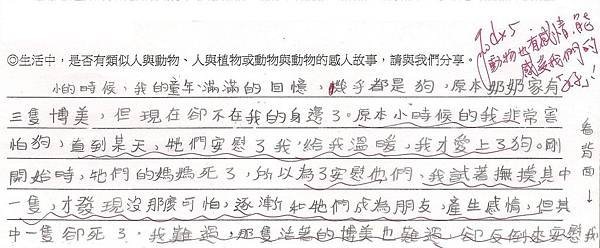 Good x5
動物也有感情，能
感受我們的
「好」！
◎生活中，是否有類似人與動物、人與植物或動物與動物的感人故事，請與我們分享。
小的時候，我的童年滿滿的回憶，幾乎都是狗，原本奶奶家有
三隻博美，但現在卻不在我的身邊了。原本小時候的我非常害
怕狗，直到某天，牠們安慰了我，給我溫暖，我才愛上了狗。剛
開始時，牠們的媽媽死了，所以為了安慰他們，我試著撫摸其中
一隻，才發現沒那麼可怕，逐漸和牠們成為朋友，產生感情，但其
中一隻卻死了，我難過，那隻活著的博美也難過，卻反倒來安慰我
看背面↓